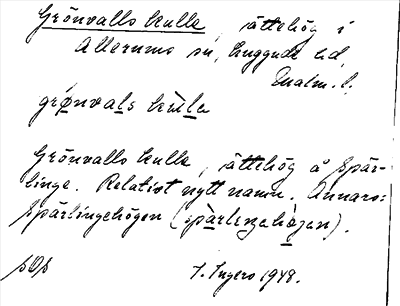 Grönvalls kulle, ättehög i
Allerums sn, Luggude hd,
Malm. l.
grønvals kula
Grönvalls kulle, ättehög å Spär-
linge. Relativt nytt namn. Annars:
Spärlingehögen (spärlingahöjen).
1. Ingers 1948.